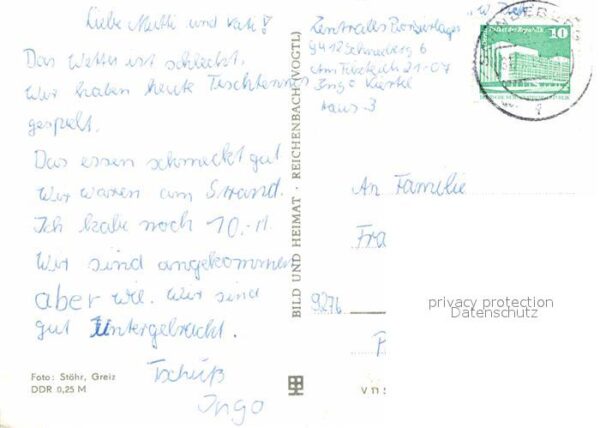 Liebe Mutti und Vati!
Das Wetter ist schlecht.
Wir haben heute Tischtennis
gespielt.
Das essen schmeckt gut
Wir waren am Strand.
Ich habe noch 10,-M
Wir sind angekommen
aber wie. Wir sind
gut Untergebracht.
Tschüß
Ingo
Foto: Stöhr, Greiz
DDR 0,25 M
BILD UND HEIMAT · REICHENBACH (VOGTL)
Zentrales
9412 Schneeberg 6
Am 21-07
Ingo
Haus 3
10
An Familie
Fra
9276
privacy protection
Datenschutz
F
V 11